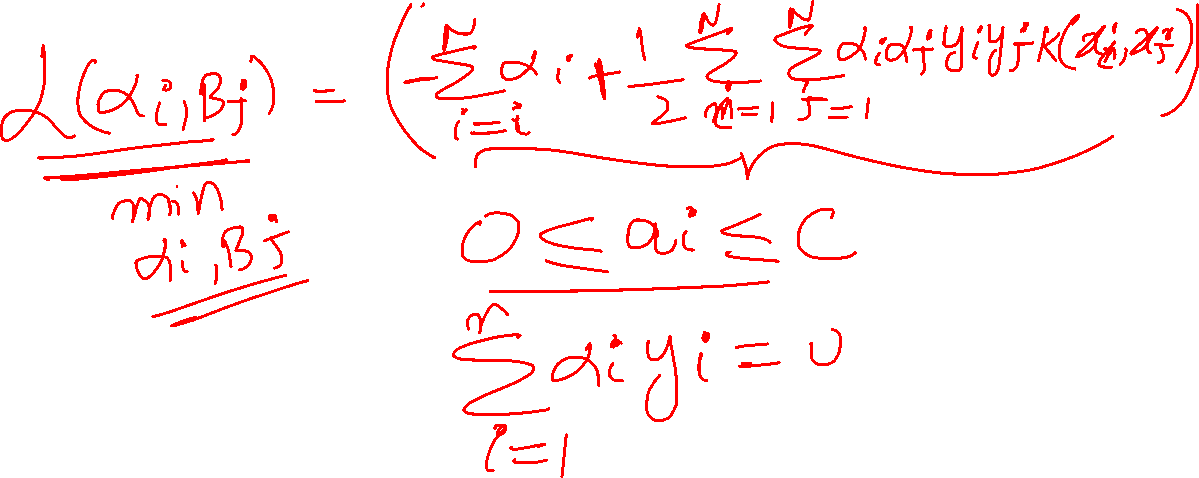 L(αi, Bj) = (-∑_{i=i}^{N} αi + 1/2 ∑_{i=1}^{N} ∑_{j=1}^{N} αiαjyiyjK(xi, xj))
min
αi, Bj
0 ≤ ai ≤ C
∑_{i=1}^{n} αiyi = 0